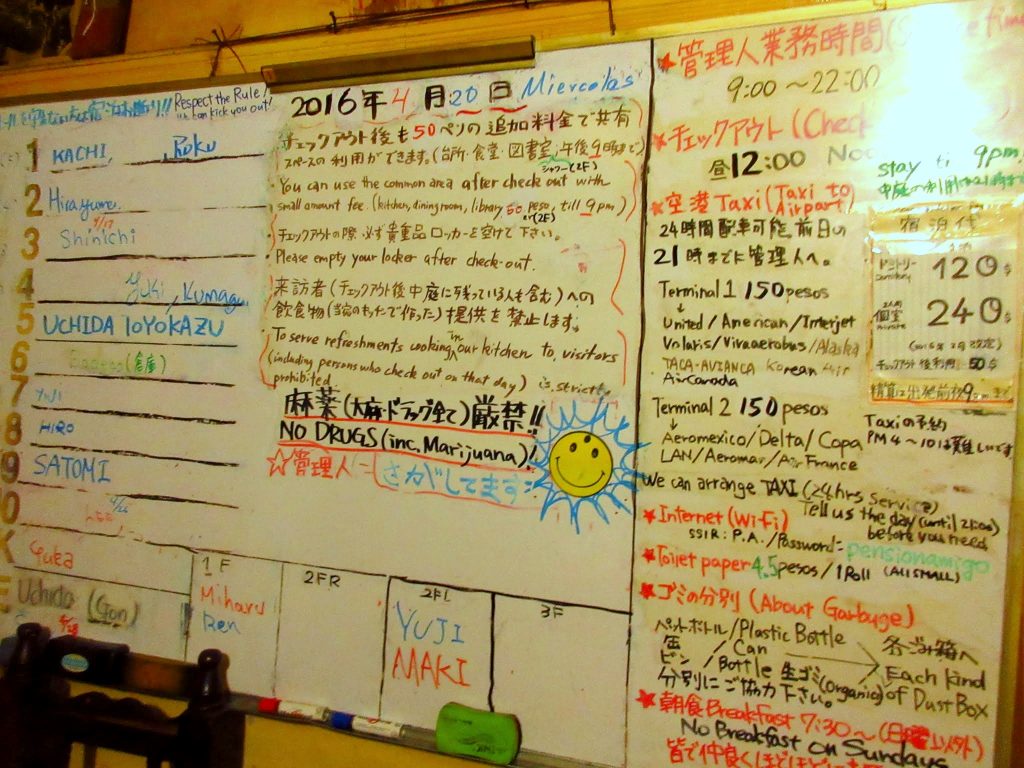 Respect the Rule!
can kick you out!
1 KACHI, Roku
2 Hirayume.
3 Shinichi
4 Yuki, Kumagu
5 UCHIDA TOYOKAZU
6 (倉庫)
7 YUJI
8 HIRO
9 SATOMI
Yuka
Uchida (Gon)
1F
Miharu
Ren
2FR
2FL
YUJI
MAKI
3F
2016年 4月 20日 Miercoles
チェックアウト後も50ペソの追加料金で共有
スペースの利用ができます。(台所・食堂・図書室;午後9時まで)
シャワー(2F)
・You can use the common area after check out with
small amount fee. (kitchen, dining room, library 50 peso, till 9pm.)
(2F)
・チェックアウトの際、必ず貴重品ロッカーを空けて下さい。
・Please empty your locker after check-out.
来訪者(チェックアウト後中庭に残っている人も含む)への
飲食物(当宿のキッチンで作った)提供を禁止します。
・To serve refreshments cooking in our kitchen to visitors
(including persons who check out on that day) is strictly
prohibited
麻薬(大麻・ドラッグ全て)厳禁!!
NO DRUGS (inc. Marijuana)!
☆管理人 さがしてます
★管理人業務時間
9:00～22:00
★チェックアウト (Check
昼12:00
stay 9pm
★空港Taxi (Taxi to
Airport)
24時間配車可能、前日の
21時までに管理人へ。
Terminal 1 150pesos
↓
United/American/Interjet
Volaris/Vivaaerobus/Alaska
TACA-AVIANCA Korean Air
Air Canada
Terminal 2 150pesos
↓
Aeromexico/Delta/Copa
LAN/Aeromar/Air France
宿泊代
ドミトリー 120$
個室 240$
チェックアウト後利用 50$
精算は出発前夜9:00まで
Taxiの予約
PM4～10は難しいです
We can arrange TAXI (24hrs service)
Tell us the day (until 21:00)
before you need
★Internet (Wi-Fi)
SSIR: P.A./Password: pensionamigo
★Toilet paper 4.5pesos/1Roll (All SMALL)
★ゴミの分別 (About Garbage)
ペットボトル/Plastic Bottle
缶 / Can
ビン / Bottle 生ゴミ(organic)
各ごみ箱へ
Each kind
of Dust Box
分別にご協力下さい。
★朝食 Breakfast 7:30～(日曜以外)
No Breakfast on Sundays
皆で仲良く